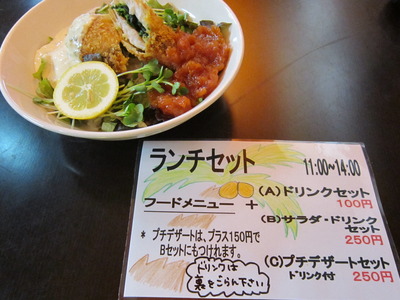 ランチセット 11:00~14:00
フードメニュー + (A)ドリンクセット
100円
(B)サラダ・ドリンク
セット
250円
* プチデザートは、プラス150円で
Bセットにもつけれます。
(C)プチデザートセット
ドリンク付 250円
ドリンクは
裏をごらん下さい